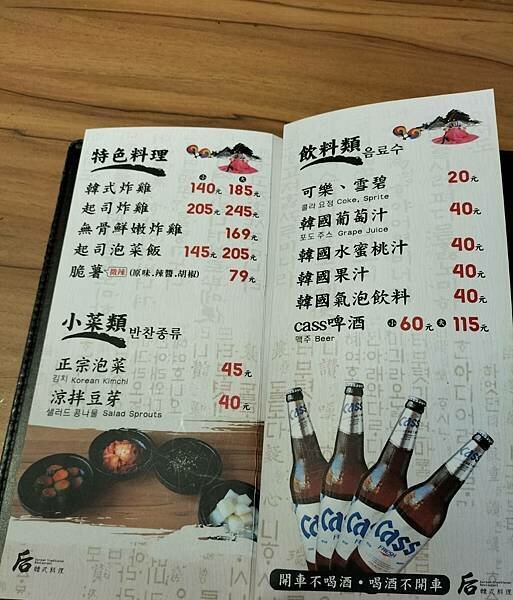 特色料理
小 大
韓式炸雞 140元 185元
起司炸雞 205元 245元
無骨鮮嫩炸雞 169元
起司泡菜飯 145元 205元
脆薯 微辣 (原味.辣醬.胡椒) 79元
小菜類 반찬종류
正宗泡菜 45元
김치 Korean Kimchi
涼拌豆芽 40元
샐러드 콩나물 Salad Sprouts
后 韓式料理
飲料類 음료수
可樂、雪碧 20元
콜라 요정 Coke, Sprite
韓國葡萄汁 40元
포도 주스 Grape Juice
韓國水蜜桃汁 40元
韓國果汁 40元
韓國氣泡飲料 40元
cass啤酒 小60元 大115元
맥주 Beer
Cass
Cass
Cass
Cass
開車不喝酒・喝酒不開車
后 韓式料理